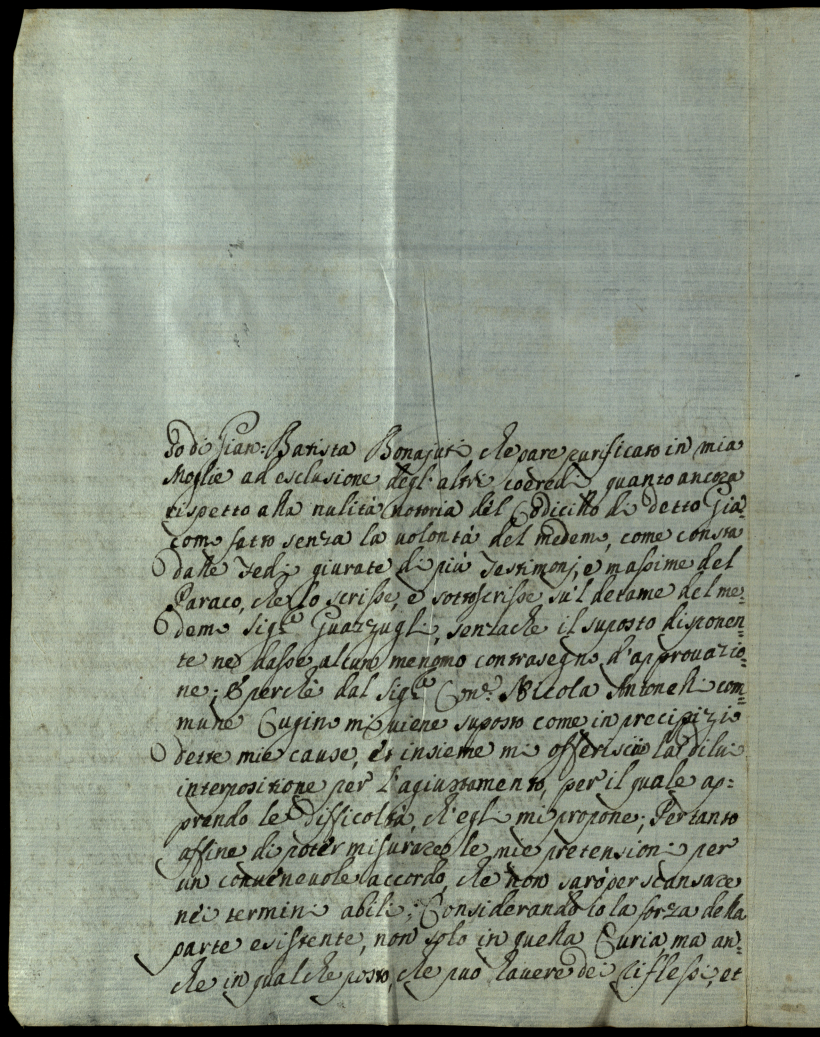 so di Gian: Batista Bonajuti che pare purificato in mia
Moglie ad esclusione degl'altri coeredi quanto ancora
rispetto alla nulità notoria del Codicillo di detto Gia=
como fatto senza la volontà del medemo, come consta
dalle Fedi giurate di più Testimonj, e massime del
Paraco, che lo scrisse, e sottoscrisse su'l detame del me=
demo Sigr Guazzugli, senzache il suposto disponen=
te ne dasse alcun menomo contrasegno d'approvazio=
ne; E perche dal Sigr Nicola Antonelli com=
mune Cugino mi viene suposto come in precipizio
dette mie cause, et insieme mi offerisce la di lui
interpositione per l'agiustamento, per il quale ap=
prendo le difficoltà, ch'egli mi propone; Pertanto
affine di poter misurare le mie pretensioni per
un convenevole accordo, che non sarò per scansare
nei termini abili; Considerando io la forza della
parte esistente, non solo in quella Curia, ma an=
che in qualche posto, che può havere dei riflessi, et